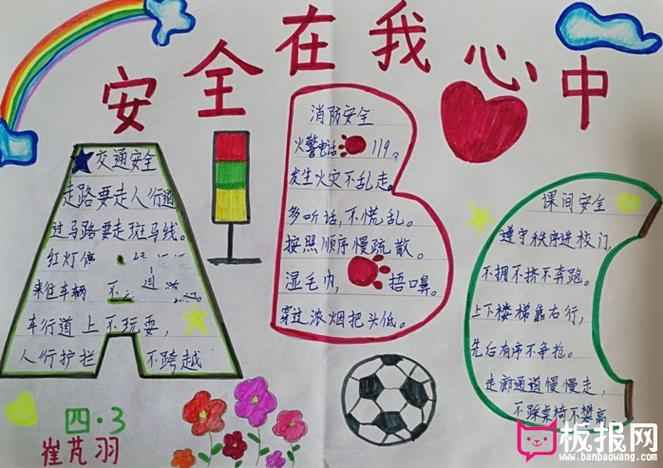 安全在我心中
交通安全
走路要走人行道
过马路要走斑马线。
红灯停
来往车辆 不
车行道上不玩耍，
人行护栏 不跨越
消防安全
火警电话 119。
发生火灾不乱走。
多听话，不慌乱。
按照顺序慢疏散。
湿毛巾， 捂口鼻。
穿过浓烟把头低。
课间安全
遵守秩序进校门，
不拥不挤不奔跑。
上下楼梯靠右行，
先后有序不争抢。
走廊通道慢慢走，
不踩桌椅不攀高
四·3
崔芃羽
板报网
www.banbaowang.com